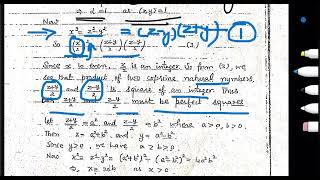 ⇒ d = 1 as (x,y)=1.
Now
→ x² = z²-y² = (z-y)(z+y) - ①
So (x/2)² = (z+y/2)(z-y/2) — (3.)
Since x is even, x/2 is an integer. In form (3), we
see that product of two coprime natural numbers,
z+y/2 and z-y/2 is square of an integer. Thus
z+y/2 and z-y/2 must be perfect squares
let z+y/2 = a² and z-y/2 = b² where a>0, b>0.
Then z = a²+b² and y = a²-b²
Since y>0, we have a>b>0
Now x² = z²-y² = (a²+b²)² - (a²-b²)² = 4a²b²
⇒ x = 2ab as x>0